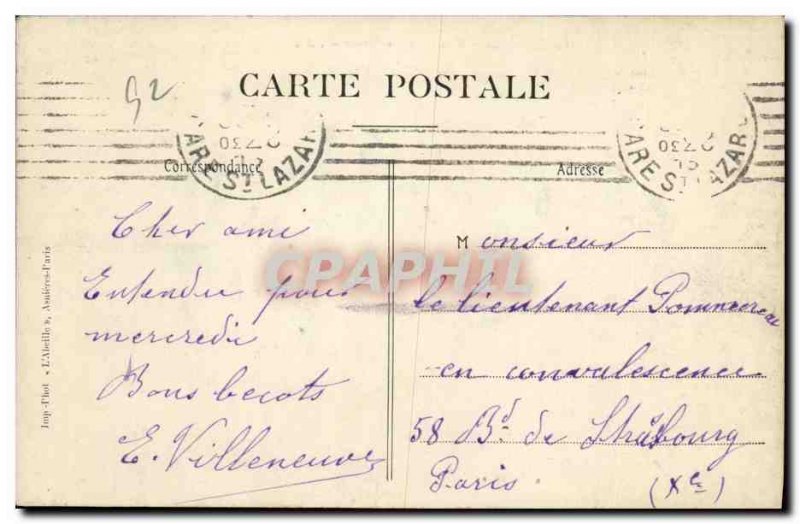 92
CARTE POSTALE
ARE ST LAZAR
ARE ST LAZAR
Correspondance
Adresse
Cher ami
Entendu pour
mercredi
Bons becots
E. Villeneuve
Monsieur
le lieutenant Pommereau
en convalescence
58 Bd de Strasbourg
Paris (Xe)
Imp-Phot « L'Abeille », Asnières-Paris
CPAPHIL